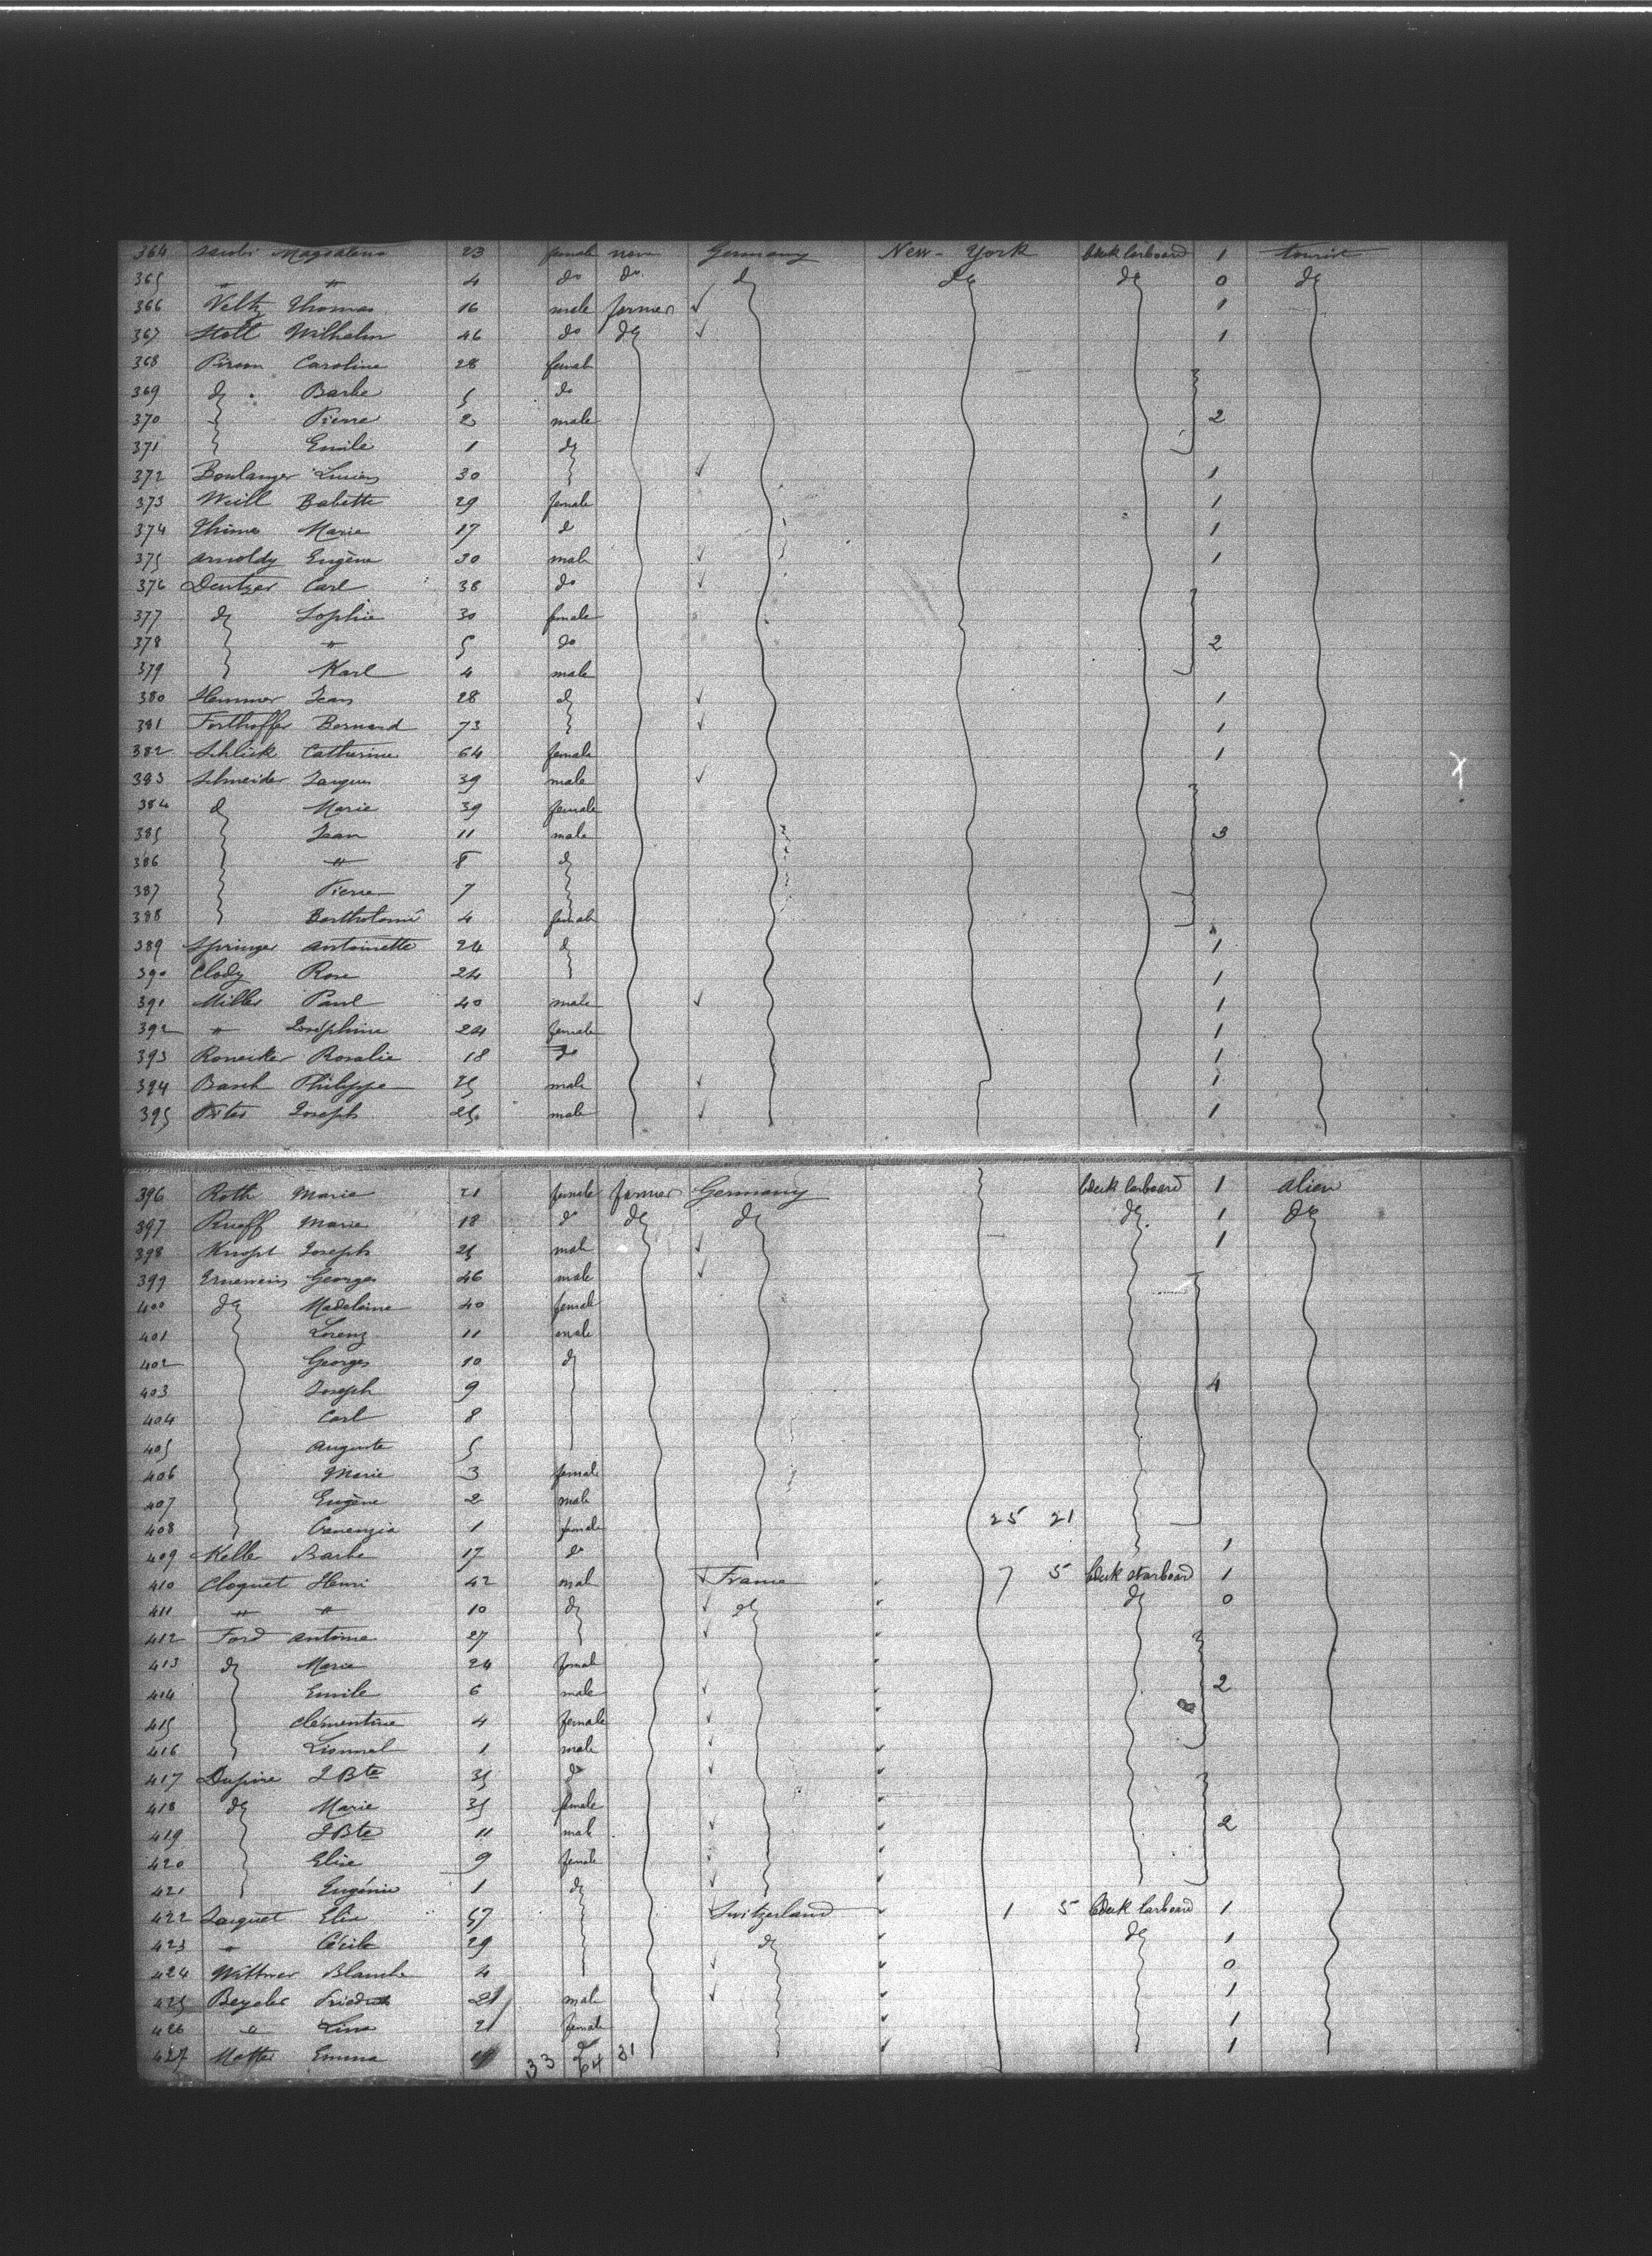 364 Jacobi Magdalena 23 female none Germany New-York deck larboard 1 tourist
365 " " 4 do do d d d 0 d
366 Veltz Thomas 16 male farmer 1
367 Stoll Wilhelm 46 do d 1
368 Caroline 28 female
369 d Barbe 5 do
370 Pierre 2 male 2
371 Emile 1 d
372 Boulanger Lucien 30 1
373 Weill Babette 29 female 1
374 Marie 17 d 1
375 Arnoldy Eugène 30 male 1
376 Dentzer Carl 38 do
377 d Sophie 30 female
378 " 5 do 2
379 Karl 4 male
380 Hemmer Jean 28 d 1
381 Forthoffer Bernard 73 1
382 Schlick Catherine 64 female 1
383 Schneider Jacques 39 male
384 d Marie 39 female
385 Jean 11 male 3
386 " 8 d
387 Pierre 7
388 Bartholomé 4 female
389 Springer Antoinette 24 d 1
390 Clody Rose 24 1
391 Miller Paul 40 male 1
392 " Joséphine 24 female 1
393 Rosalie 18 do 1
394 Basch Philippe 25 male 1
395 Joseph 25 male 1
396 Roth Marie 21 female farmer Germany deck larboard 1 alien
397 Rueff Marie 18 do d d d 1 d
398 Joseph 25 male 1
399 Ernewein Georges 46 male
400 d Madeleine 40 female
401 Lorenz 11 male
402 Georges 10 d
403 Joseph 9 4
404 Carl 8
405 Auguste 5
406 Marie 3 female
407 Eugène 2 male
408 1 female 25 21
409 Kelle Barbe 17 do 1
410 Cloquet Henri 42 male France 7 5 deck starboard 1
411 " " 10 d d d 0
412 Ford Antoine 27
413 d Marie 24 female
414 Emile 6 male 2
415 Clémentine 4 female
416 Lionnel 1 male
417 J Bte 35 do
418 d Marie 35 female
419 J Bte 11 male 2
420 Elise 9 female
421 Eugénie 1 d
422 Jaquet Elise 57 Switzerland 1 5 deck larboard 1
423 " Cécile 29 d d 1
424 Wittmer Blanche 4 0
425 Beyeler Friedrich 21 male 1
426 " Lina 21 female 1
427 Matter Emma 33 64 31 1